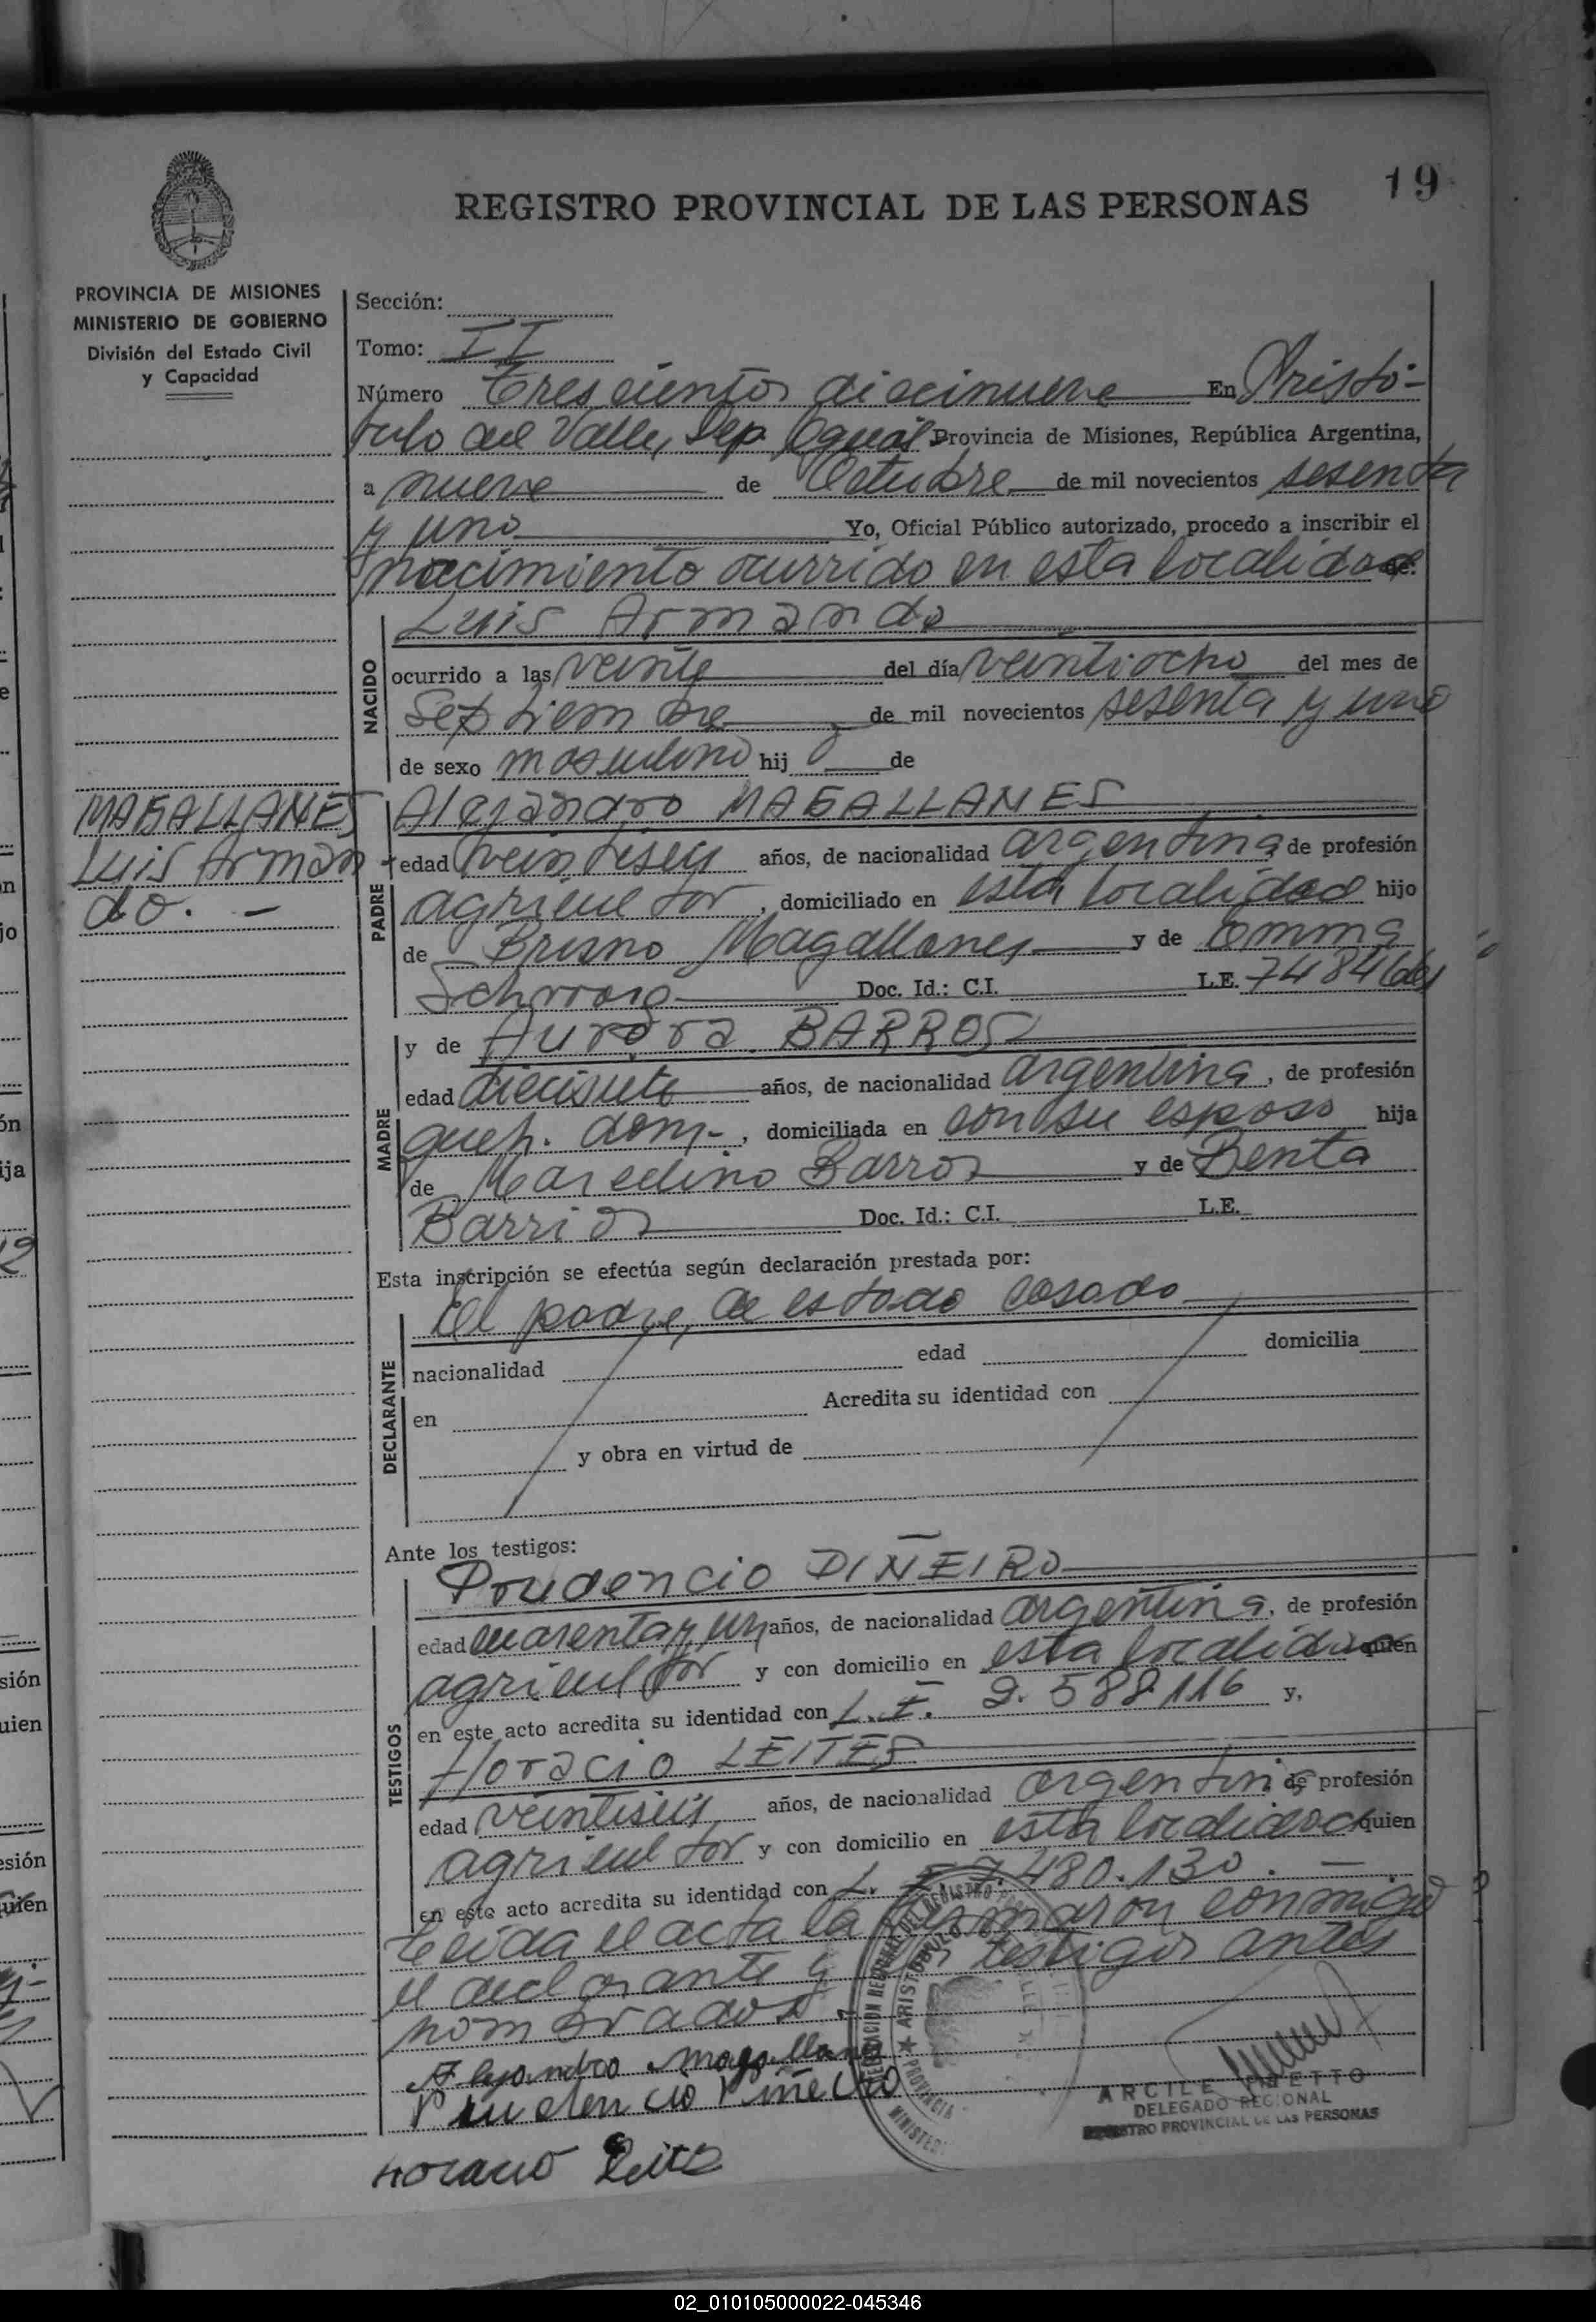 19
REGISTRO PROVINCIAL DE LAS PERSONAS
PROVINCIA DE MISIONES
MINISTERIO DE GOBIERNO
División del Estado Civil
y Capacidad
MAGALLANES
Luis Arman
do. -
Sección:
Tomo: II
Número Trescientos diecinueve En Aristó-
tulo del Valle, Dep. Cguás Provincia de Misiones, República Argentina,
a nueve de Octubre de mil novecientos sesenta
y uno Yo, Oficial Público autorizado, procedo a inscribir el
nacimiento ocurrido en esta localidad de:
Luis Armando
NACIDO
ocurrido a las veinte del día veintiocho del mes de
Septiembre de mil novecientos sesenta y uno
de sexo masculino hij o de
Alejandro MAGALLANES
PADRE
edad veintiseis años, de nacionalidad argentina de profesión
agricultor, domiciliado en esta localidad hijo
de Bruno Magallanes y de Emma
Doc. Id.: C.I. L.E.
y de Aurora BARROS
MADRE
edad diecisiete años, de nacionalidad argentina, de profesión
queh. dom-, domiciliada en con su esposo hija
de Marcelino Barros y de Benta
Barrios Doc. Id.: C.I. L.E.
Esta inscripción se efectúa según declaración prestada por:
el padre, de estado casado
DECLARANTE
nacionalidad edad domicilia
en Acredita su identidad con
y obra en virtud de
Ante los testigos:
Prudencio PIÑEIRO
TESTIGOS
edad cuarenta y un años, de nacionalidad argentina, de profesión
agricultor y con domicilio en esta localidad quien
en este acto acredita su identidad con L.E. 2.588.116 y,
Horacio LEITES
edad veintiseis años, de nacionalidad argentina de profesión
agricultor y con domicilio en esta localidad quien
en este acto acredita su identidad con L. E. 7.480.130. -
Leida el acta la firmaron conmigo
el declarante y los testigos antes
nombrados.
Alejandro Magallanes
Prudencio Piñeiro
Horacio Leites
ARISTOBULO
PROVINCIA
ARCILE
DELEGADO REGIONAL
REGISTRO PROVINCIAL DE LAS PERSONAS
02_010105000022-045346